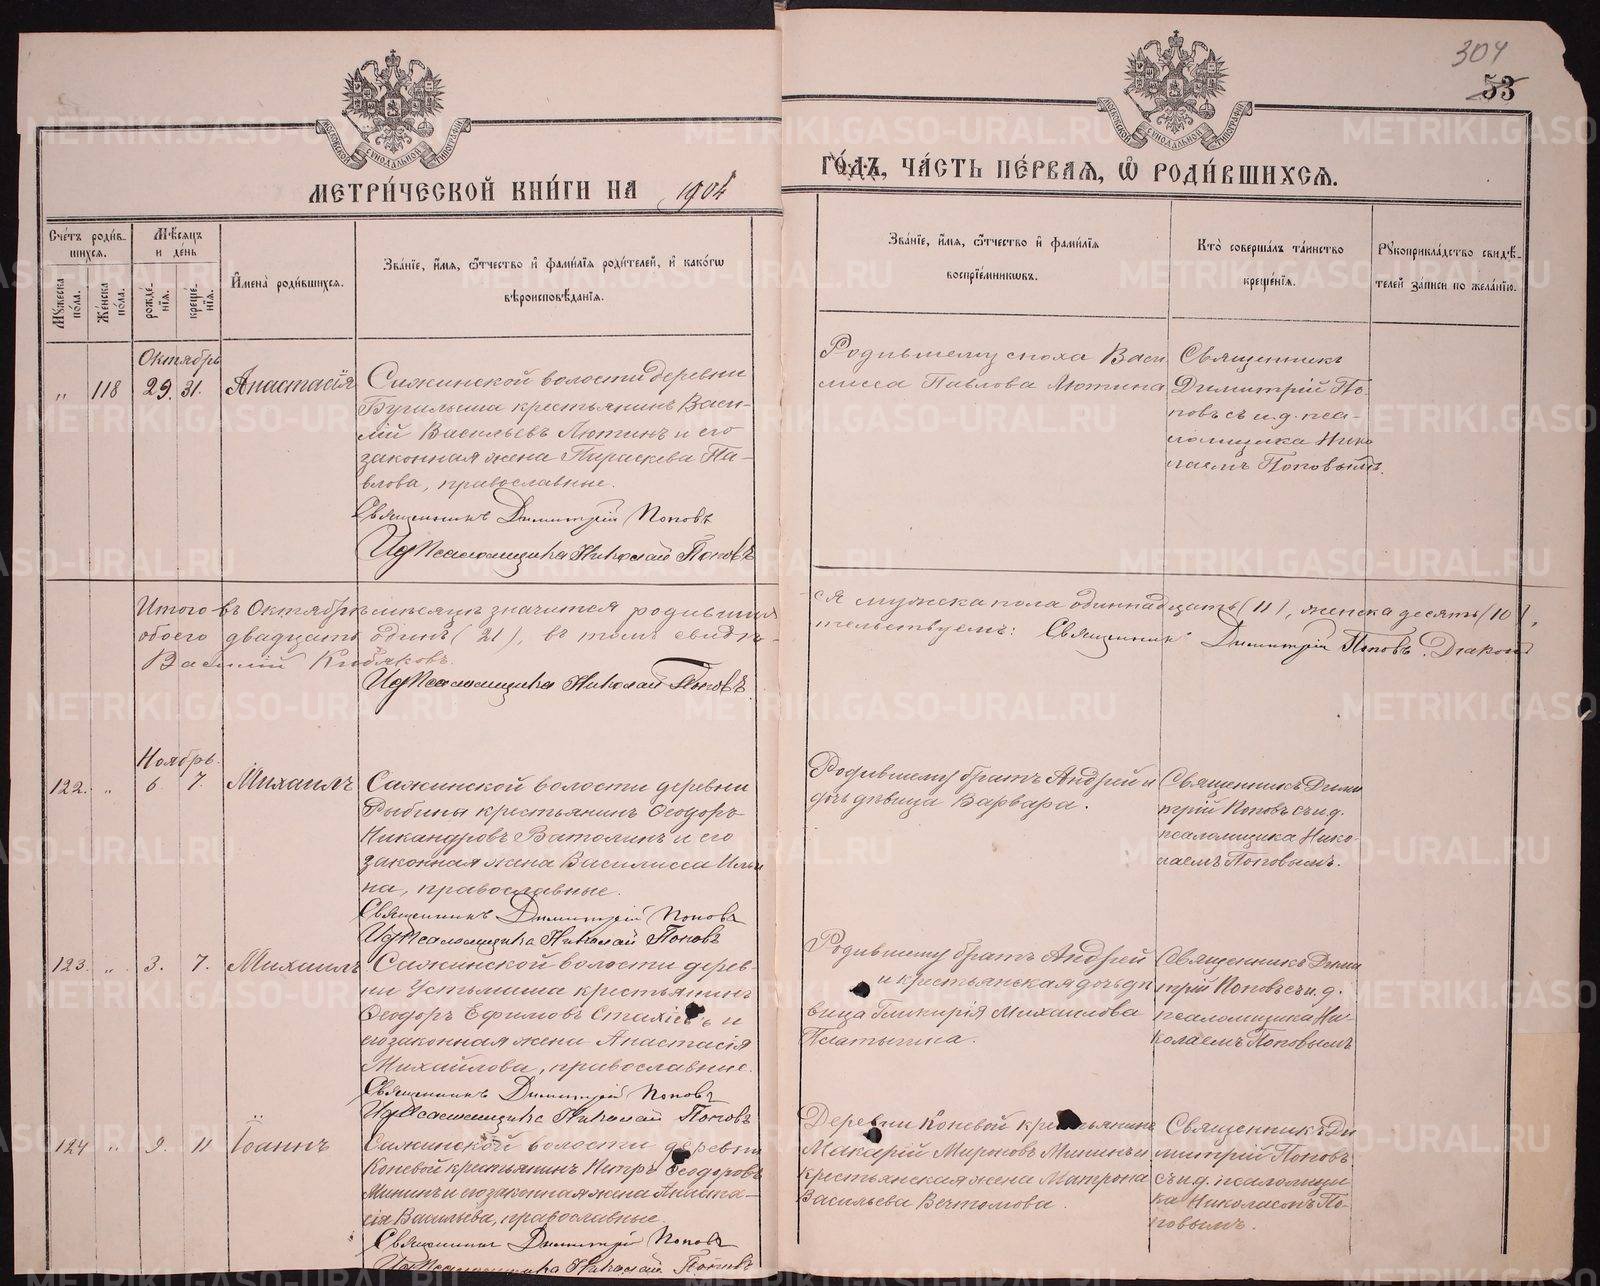 304
53
МЕТРИ́ЧЕСКОЙ КНИ́ГИ НА 1904 ГО́ДЪ, ЧА́СТЬ ПЕ́РВАѦ, Ѡ҆ РОДИ́ВШИХСѦ.
Сче́тъ роди́вшихсѧ.
Мѹ́жеска по́ла.
Же́нска по́ла.
Мѣ́сѧцъ и де́нь
рожде́нїѧ.
креще́нїѧ.
И҆мена̀ роди́вшихсѧ.
Зва́нїе, и҆́мѧ, ѻ҆́тчество и҆ фами́лїѧ роди́телей, и҆ како́гѡ вѣроисповѣ́данїѧ.
Зва́нїе, и҆́мѧ, ѻ҆́тчество и҆ фами́лїѧ воспрїе́мниковъ.
Кто̀ соверша́лъ та́инство креще́нїѧ.
Рѹкоприкла́дство свидѣ́телей за́писи по жела́нїю.
Октябрь
" 118 29. 31. Анастасія
Сажинской волости деревни
Бугалыша крестьянинъ Васи-
лій Васильевъ Лютинъ и его
законная жена Параскева Па-
влова, православные.
Священникъ Димитрій Поповъ
ИдПсаломщика Николай Поповъ
Родившему сноха Васи
лисса Павлова Лютина
Священникъ
Димитрій По-
повъ съ и.д. пса-
ломщика Нико
лаемъ Поповымъ.
Итого въ Октябрѣ мѣсяцѣ значится родивших
ся мужска пола одиннадцать (11), женска десять (10),
обоего двадцать одинъ (21), въ томъ свидѣ-
тельствуемъ: Священникъ Димитрій Поповъ. Діаконъ
Василій Кибяковъ.
ИдПсаломщика Николай Поповъ.
Ноябрь.
122. " 6. 7. Михаилъ
Сажинской волости деревни
Рыбина крестьянинъ Ѳеодоръ
Никандровъ Ватолинъ и его
законная жена Василисса Ильи
на, православные.
Священникъ Димитрій Поповъ
ИдПсаломщика Николай Поповъ
Родившему братъ Андрей и
дочь дѣвица Варвара.
Священникъ Дими
трій Поповъ съ и.д.
псаломщика Нико-
лаемъ Поповымъ.
123. " 3. 7. Михаилъ
Сажинской волости дерев-
ни Устьмаша крестьянинъ
Ѳеодоръ Ефимовъ Стахіевъ и
его законная жена Анастасія
Михайлова, православные.
Священникъ Димитрій Поповъ
ИдПсаломщика Николай Поповъ
Родившему братъ Андрей
и крестьянская дочь дѣ
вица Гликирія Михаилова
Платыгина.
Священникъ Дими
трій Поповъ съ и.д.
псаломщика Ни-
колаемъ Поповымъ
124 " 9. 11 Іоаннъ
Сажинской волости деревни
Коневой крестьянинъ Петръ Ѳеодоровъ
Мининъ и его законная жена Анаста-
сія Васильева, православные.
Священникъ Димитрій Поповъ
ИдПсаломщика Николай Поповъ
Деревни Коневой крестьянинъ
Макарій Мироновъ Мининъ и
крестьянская жена Матрона
Васильева Вечтомова.
Священникъ Ди
митрій Поповъ
съ и.д. псаломщи
ка Николаемъ По-
повымъ.
METRIKI.GASO-URAL.RU